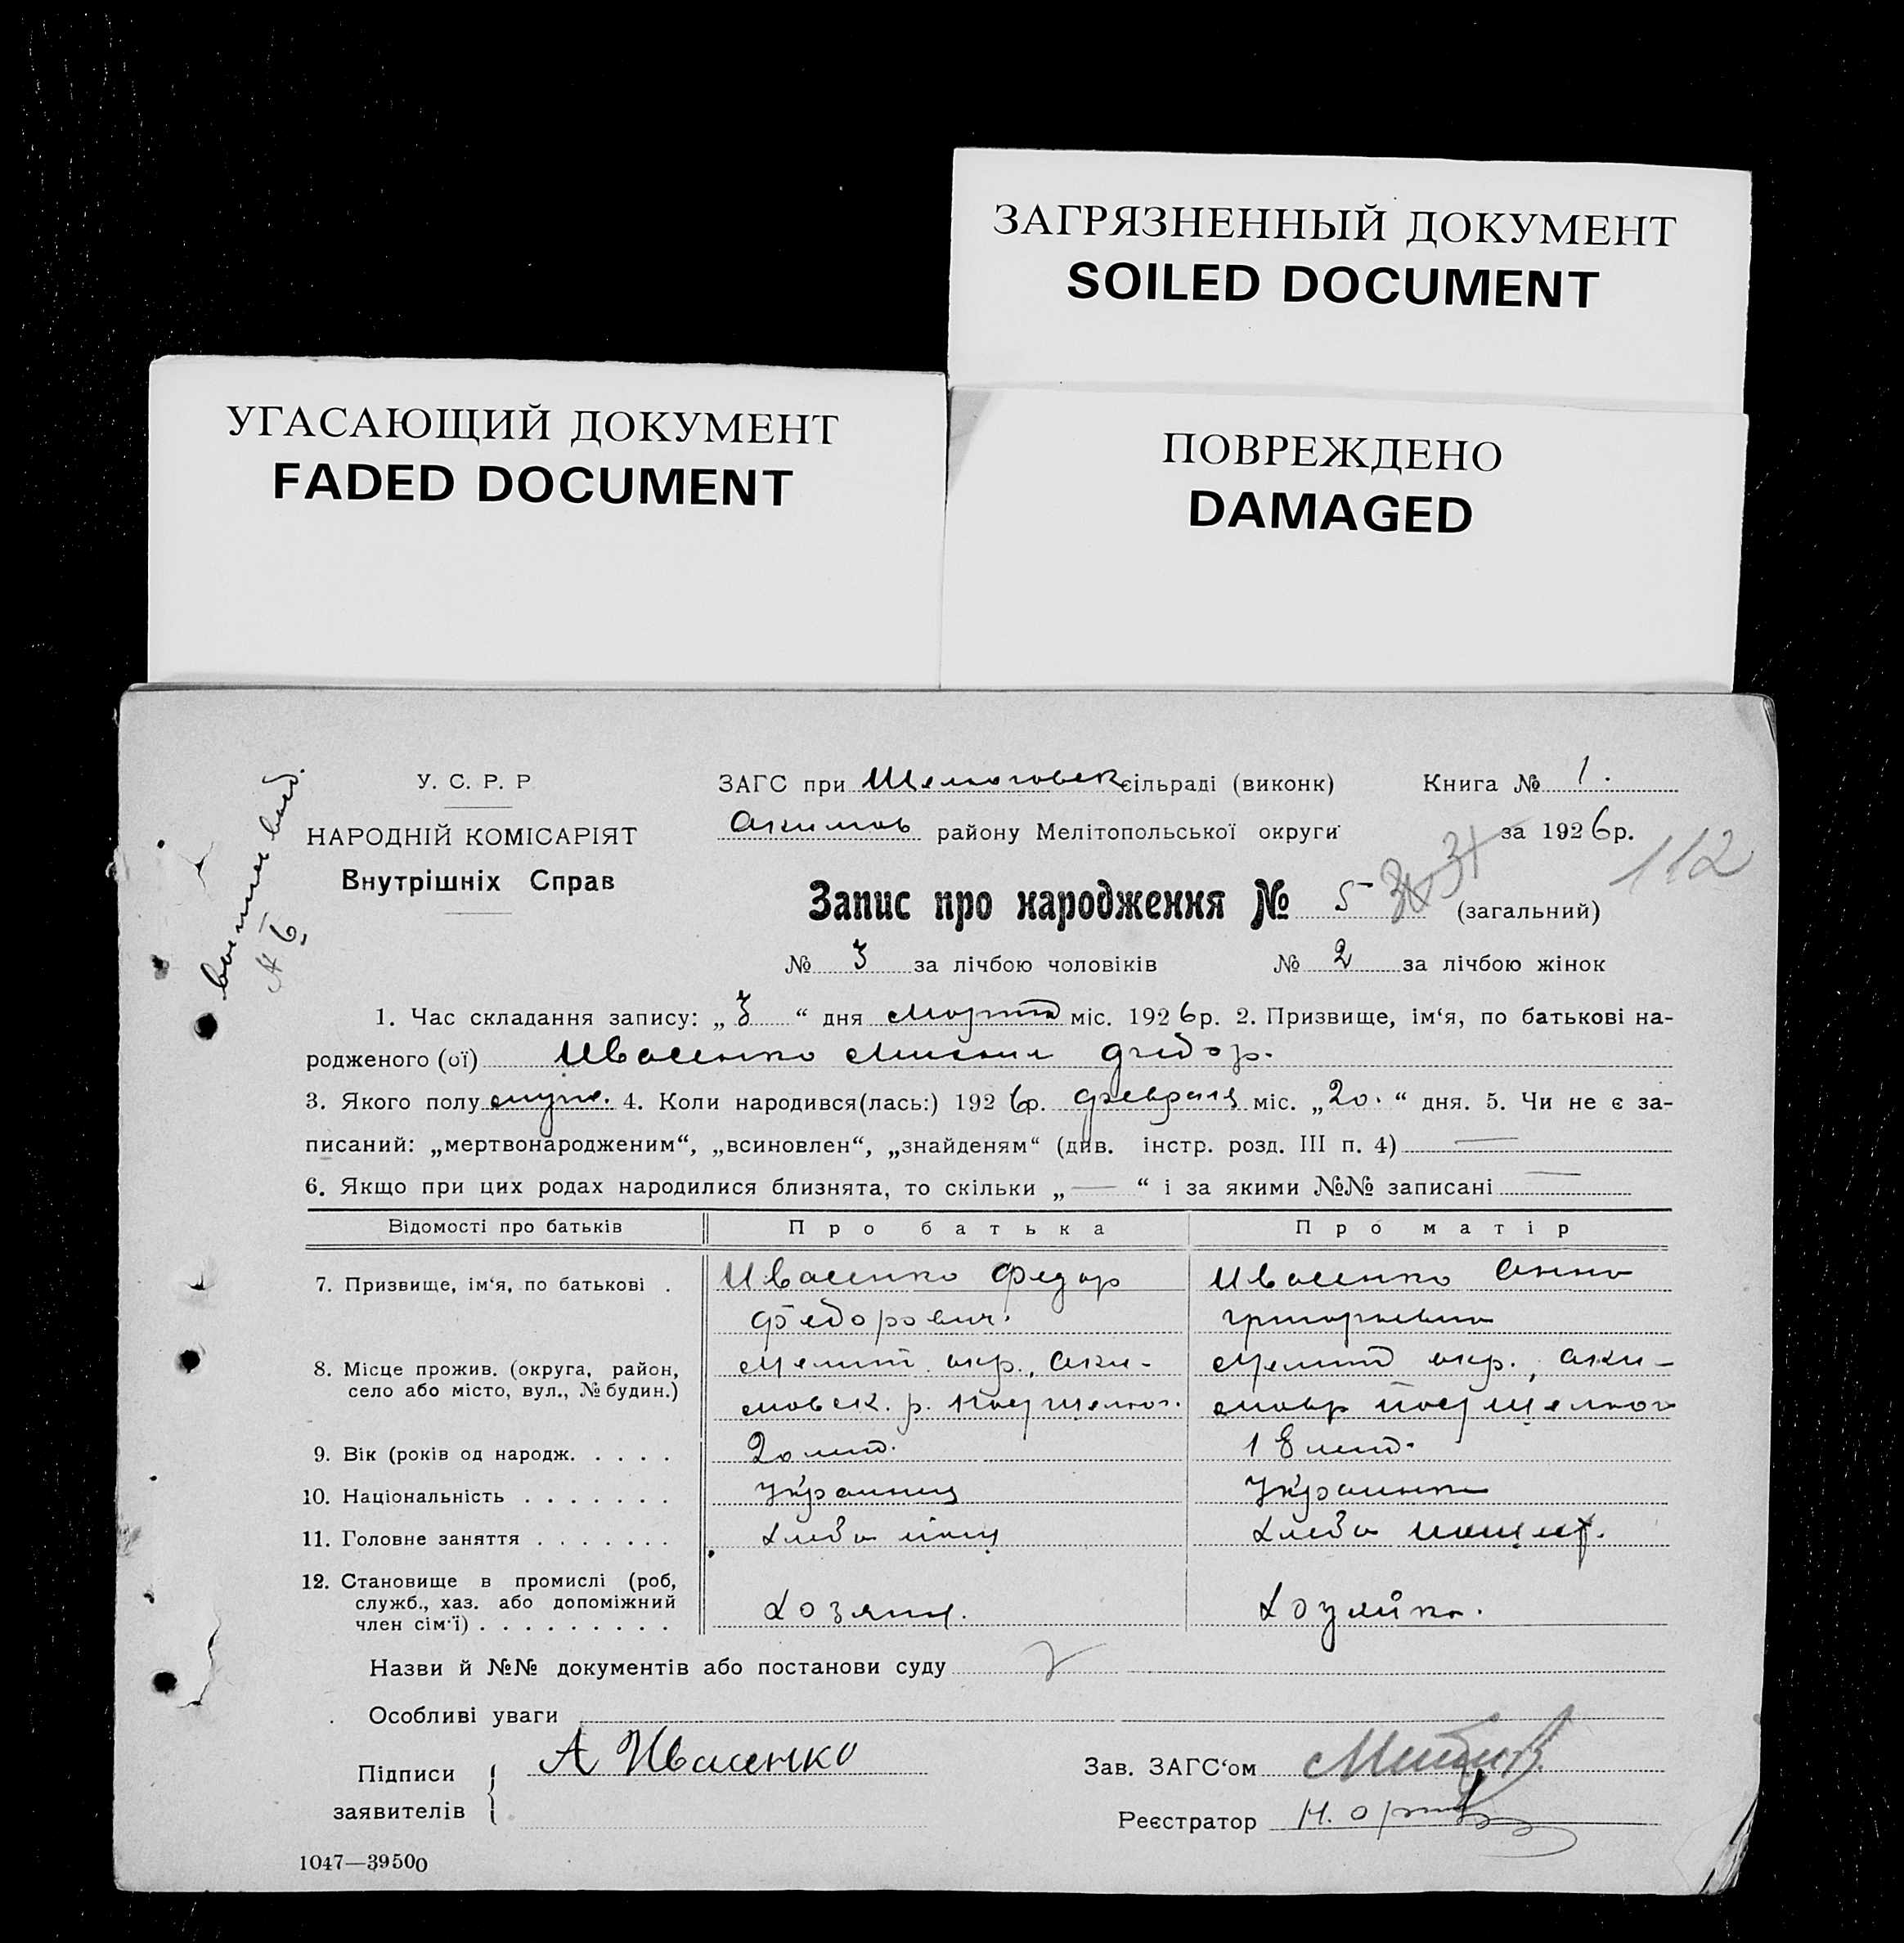 ЗАГРЯЗНЕННЫЙ ДОКУМЕНТ
SOILED DOCUMENT
УГАСАЮЩИЙ ДОКУМЕНТ
FADED DOCUMENT
ПОВРЕЖДЕНО
DAMAGED
У. С. Р. Р
НАРОДНІЙ КОМІСАРІЯТ
Внутрішніх Справ
N 6
ЗАГС при Шелюговск сільраді (виконк) Книга № 1.
Акимов району Мелітопольської округи за 1926 р.
112
Запис про народження № 5 31 (загальний)
№ 3 за лічбою чоловіків № 2 за лічбою жінок
1. Час складання запису: „3“ дня марта міс. 1926 р. 2. Призвище, ім‘я, по батькові на-
родженого (ої) Ивасенко Михаил федор.
3. Якого полу муж. 4. Коли народився(лась:) 1926 р. февраля міс. „20.“ дня. 5. Чи не є за-
писаний: „мертвонародженим“, „всиновлен“, „знайденям“ (див. інстр. розд. III п. 4) —
6. Якщо при цих родах народилися близнята, то скільки „—“ і за якими №№ записані —
Відомості про батьків Про батька Про матір
7. Призвище, ім‘я, по батькові . Ивасенко Федор Ивасенко Анна
федорович. григорьевна
8. Місце прожив. (округа, район, Мелит. окр., Аки- Мелит окр., Аки-
село або місто, вул., № будин.) мовск. р. мовр
9. Вік (років од народж. . . . . 20 лет. 18 лет.
10. Національність . . . . . . . Украинец Украинка
11. Головне заняття . . . . . . . Хлебопаш Хлебопашец.
12. Становище в промислі (роб,
служб., хаз. або допоміжний
член сім‘ї) . . . . . . . . . Хозяин. Хозяйка.
Назви й №№ документів або постанови суду
Особливі уваги
Підписи заявителів А Ивасенко
Зав. ЗАГС‘ом
Реєстратор
1047—39500